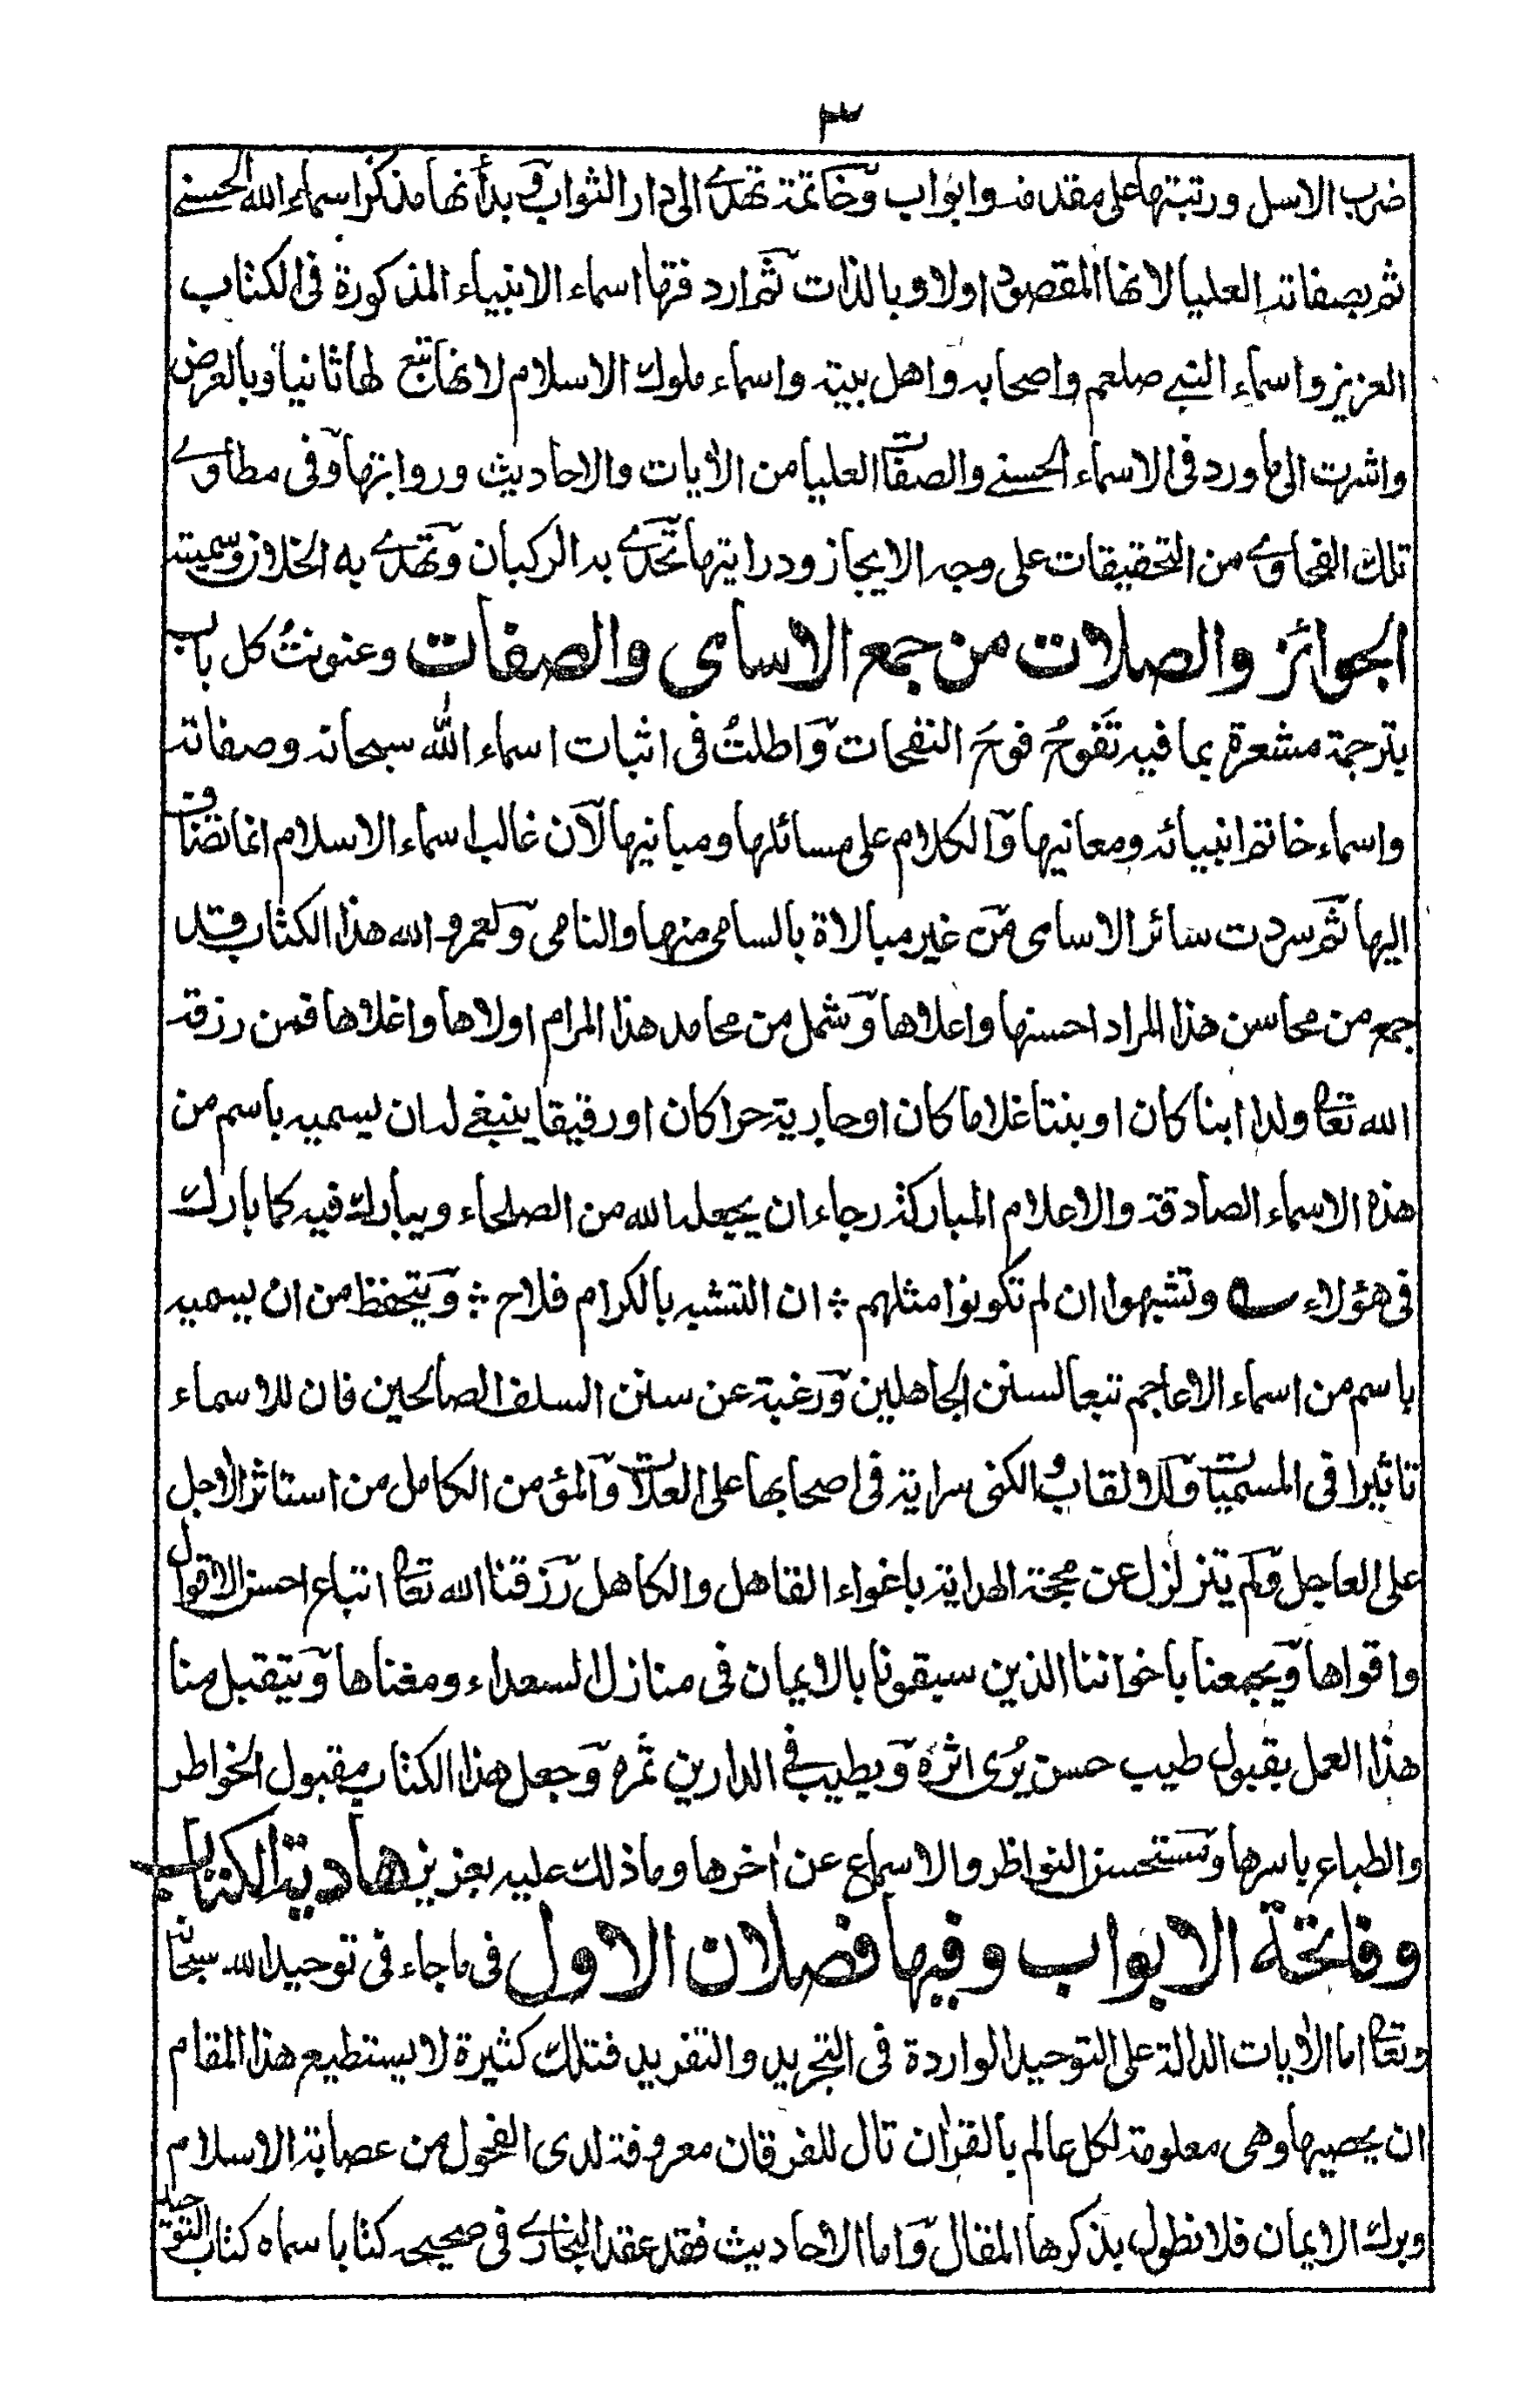 ٣
ضرب الاسل ورتبتها على مقدمة وابواب وخاتمة تهدي الى دار الثواب وبدأتها بذكر اسماء الله الحسنے
ثم بصفاته العليا لانها المقصود اولا وبالذات ثم اردفتها اسماء الانبياء المذكورة فى الكتاب
العزيز واسماء النبے صلعم واصحابه واهل بيته واسماء ملوك الاسلام لانها تبع لها ثانيا وبالعرض
واشرت الى ما ورد فى الاسماء الحسنے والصفات العليا من الآيات والاحاديث وروايتها وفى مطاوے
تلك الفحاوے من التحقيقات على وجه الايجاز ودرايتها تحدے به الركبان وتهدے به الخلان وسميته
الجوائز والصلات من جمع الاسامى والصفات وعنونتُ كل باب
بترجمة مشعرة بما فيه تَفوحُ فوحَ النفحات واطلتُ فى اثبات اسماء الله سبحانه وصفاته
واسماء خاتم انبيائه ومعانيها والكلام على مسائلها ومبانيها لان غالب اسماء الاسلام انما تضاف
اليها ثم سردت سائر الاسامى من غير مبالاة بالسامى منها والنامى ولعمرو الله هذا الكتاب قد
جمع من محاسن هذا المراد احسنها واعلاها وشمل من محامد هذا المرام اولاها واغلاها فمن رزقه
الله تعالى ولدا ابنا كان او بنتا غلاما كان او جارية حرا كان او رقيقا ينبغے له ان يسميه باسم من
هذه الاسماء الصادقة والاعلام المباركة رجاء ان يجعله الله من الصلحاء ويبارك فيه كما بارك
فى هؤلاء ؎ وتشبهوا ان لم تكونوا مثلهم ؞ ان التشبه بالكرام فلاح ؞ ويتحفظ من ان يسميه
باسم من اسماء الاعاجم تبعا لسنن الجاهلين ورغبة عن سنن السلف الصالحين فان للاسماء
تاثيرا فى المسميات وللالقاب والكنى سراية فى اصحابها على العلات والمؤمن الكامل من استاثر الآجل
على العاجل ولم يتزلزل عن محجة الهداية باغواء القاهل والكاهل رزقنا الله تعالى اتباع احسن الاقوال
واقواها ويجمعنا باخواننا الذين سبقونا بالايمان فى منازل السعداء ومغناها ويتقبل منا
هذا العمل بقبول طيب حسن يُرى اثره ويطيب فے الدارين ثمره وجعل هذا الكتاب مقبول الخواطر
والطباع باسرها ومستحسن النواظر والاسماع عن اٰخرها وما ذلك عليه بعزيز هادية الكتاب
وفاتحة الابواب وفيها فصلان الاول فى ما جاء فى توحيد الله سبحانه
وتعالى اما الآيات الدالة على التوحيد الواردة فى التجريد والتفريد فتلك كثيرة لا يستطيع هذا المقام
ان يحصيها وهى معلومة لكل عالم بالقرآن تال للفرقان معروفة لدى الفحول من عصابة الاسلام
وبرك الايمان فلا نطول بذكرها المقال واما الاحاديث فقد عقد البخارے فى صحيحه كتابا سماه كتاب التوحيد